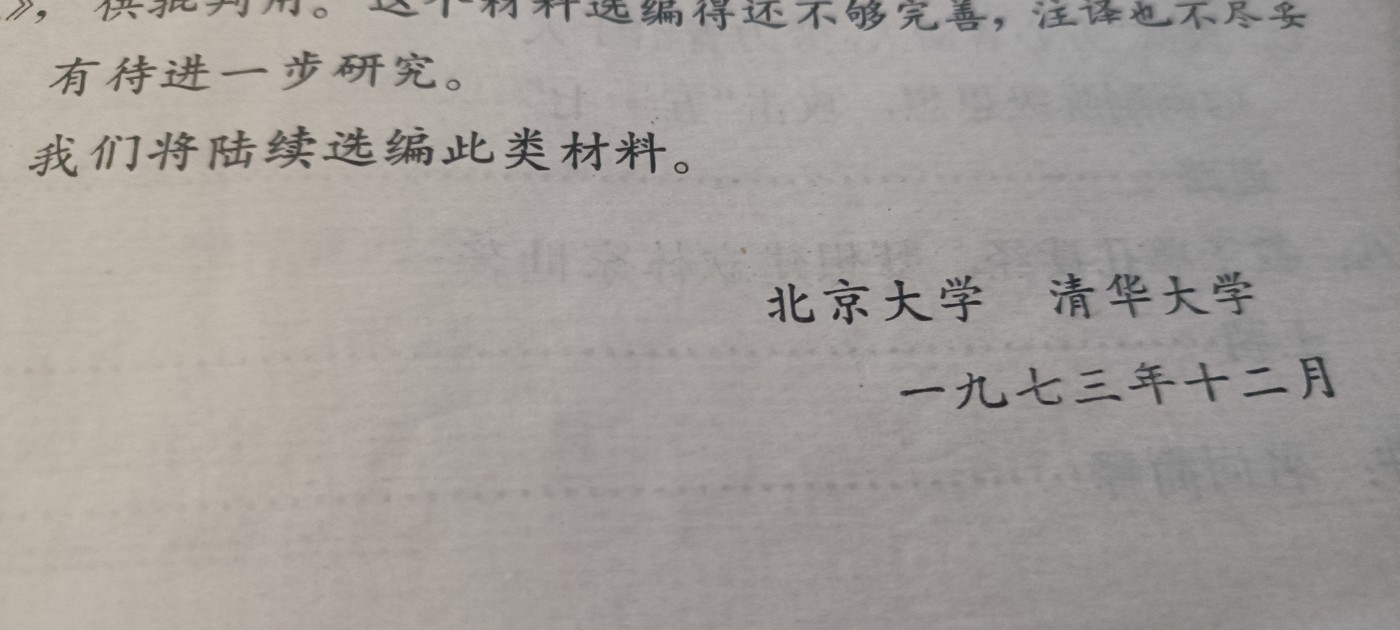 》，供批判用。这个材料选编得还不够完善，注译也不尽妥
有待进一步研究。
我们将陆续选编此类材料。
北京大学 清华大学
一九七三年十二月